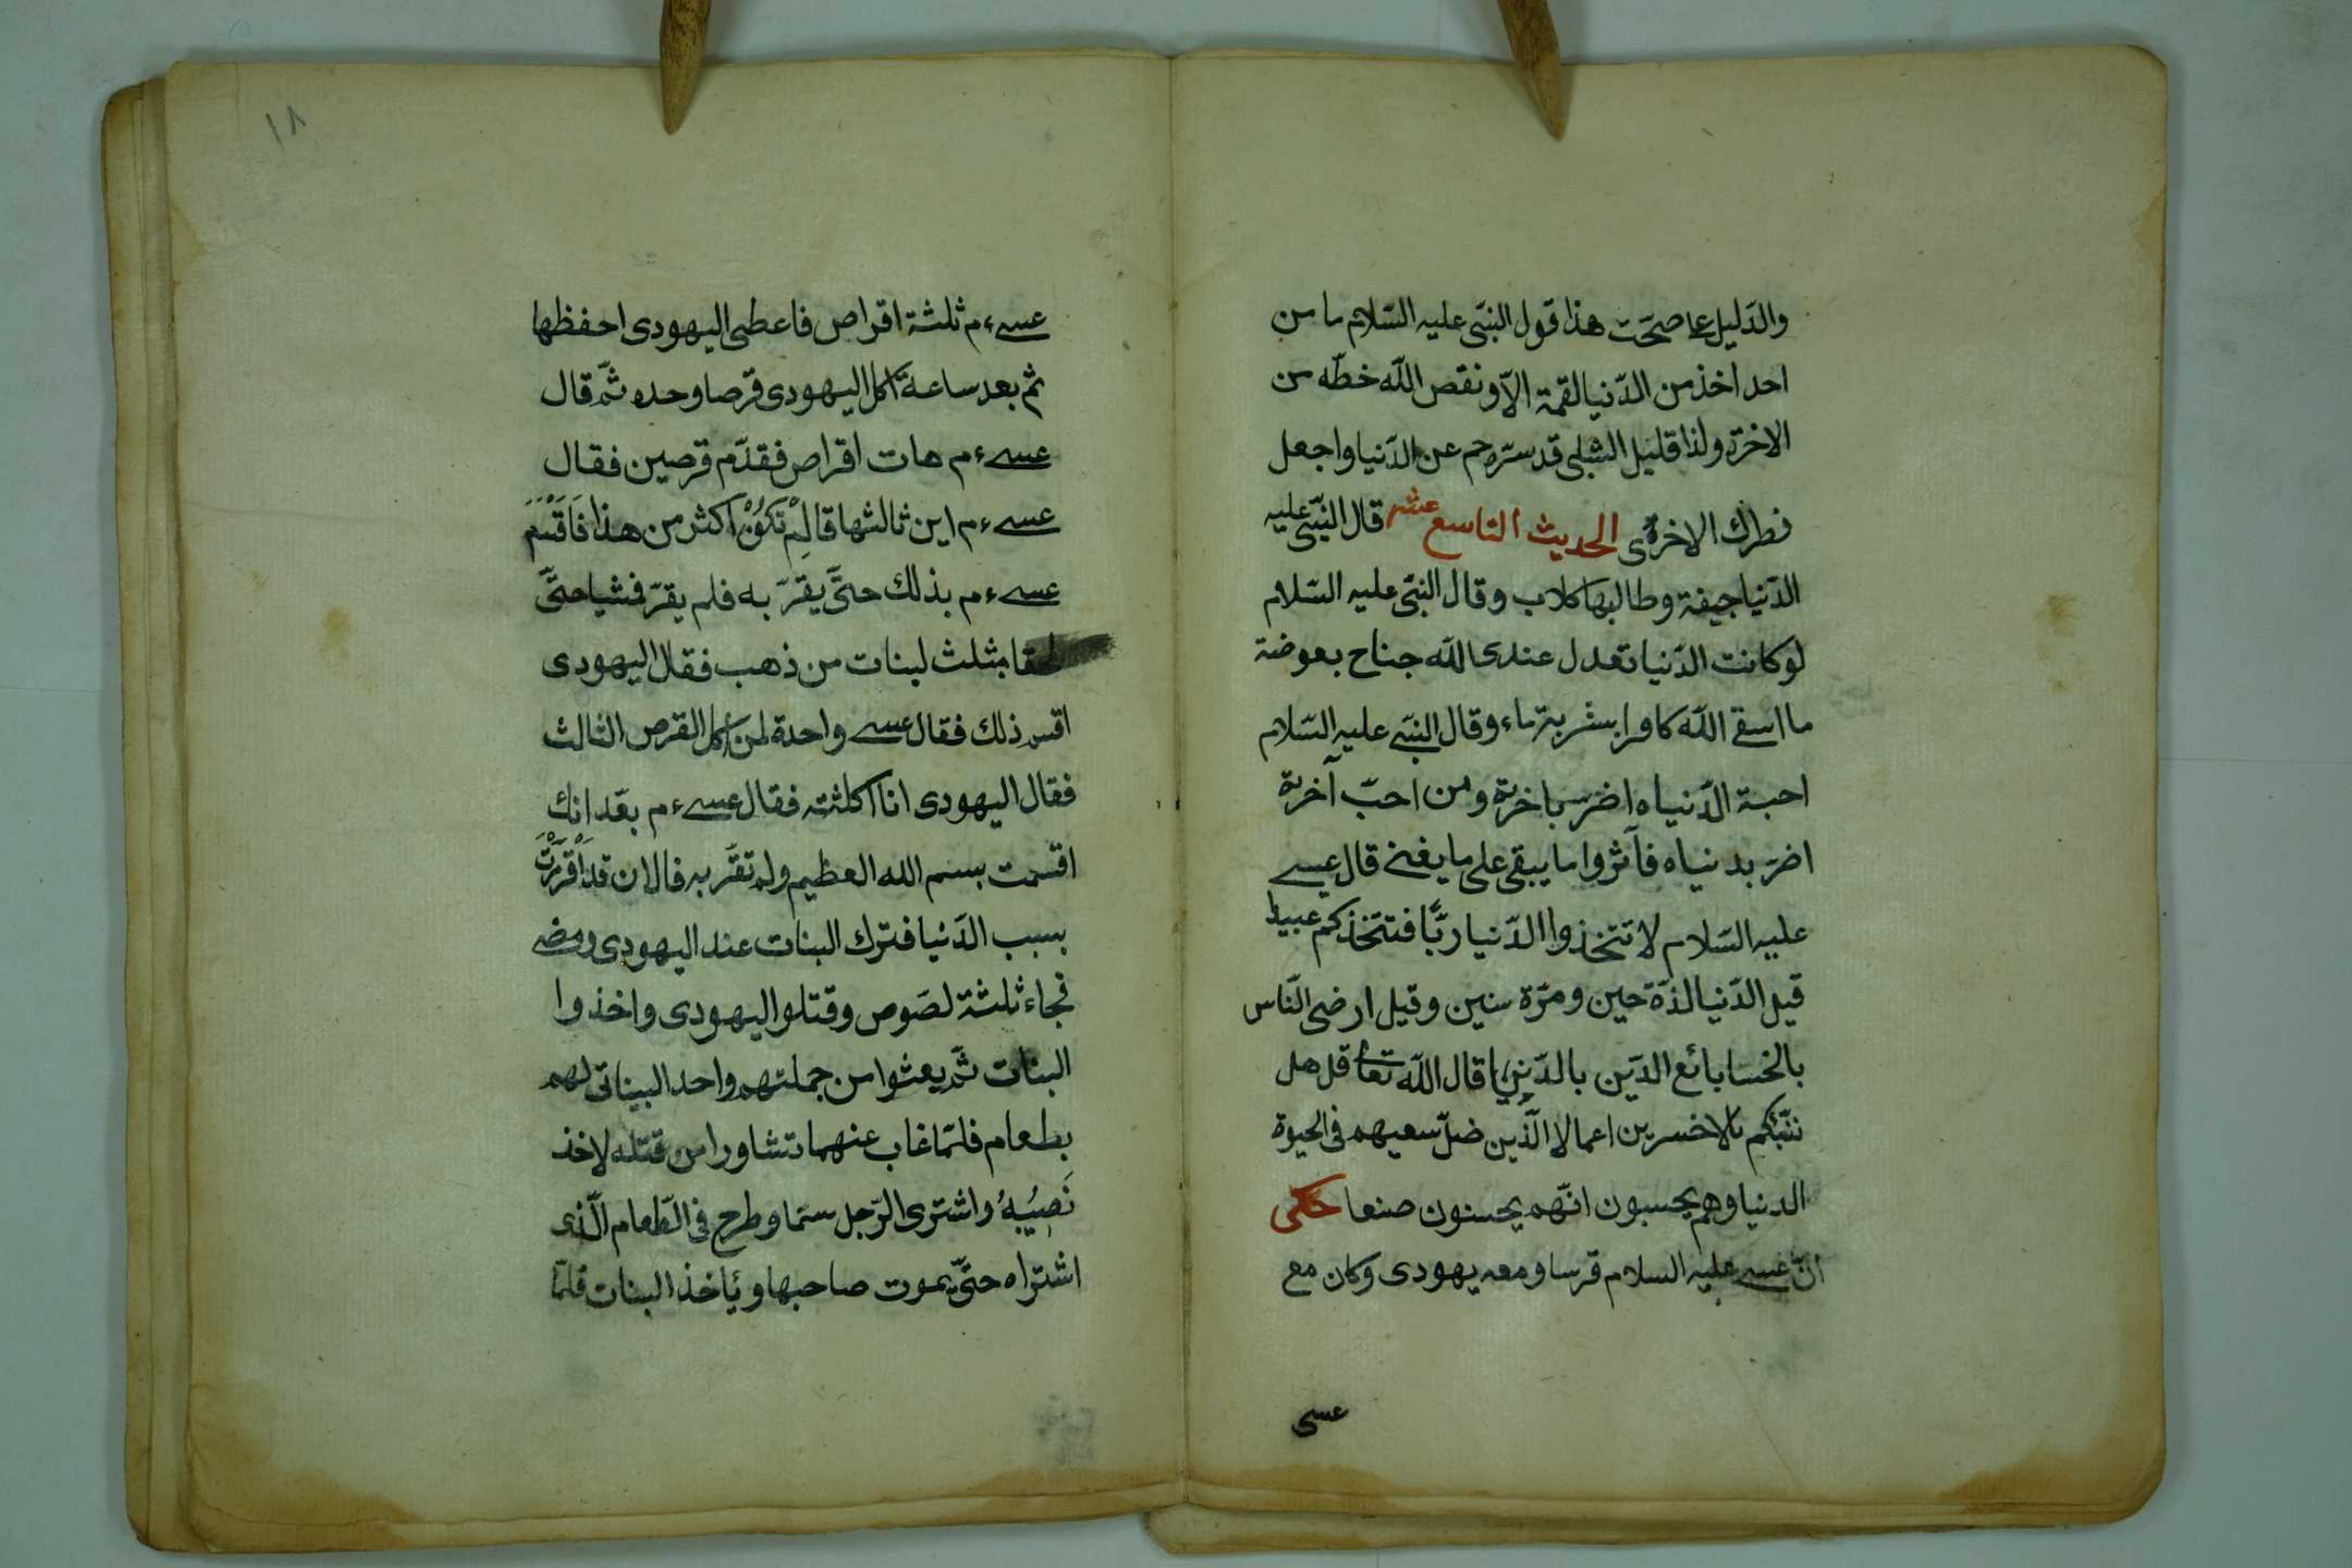 والدّليل على صحّت هذا قول النبّى عليه السّلام ما من
احد اخذ من الدّنيا لقمة الاّ ونقص اللّه خطّه من
الاخرة ولذا قليل الشبلى قد سرّه عن الدّنيا واجعل
فطرك الاخرة الحديث التاسع عشر قال النبّى عليه
الدّنيا جيفة وطالبها كلاب وقال النبّى عليه السّلام
لو كانت الدّنيا تعدل عندى اللّه جناح بعوضة
ما اسقى اللّه كافرا بشربة ماء وقال النبّى عليه السّلام
احبة الدّنياه اضرّ باخرة ومن احبّ آخرة
اضرّ بدنياه فآثروا ما يبقى على ما يفنى قال عيسى
عليه السّلام لا تتّخذوا الدّنيا ربًّا فتتّخذكم عبيدا
قيل الدّنيا لذّة حين ومرّة سنين وقيل ارضى النّاس
بالخسا بائع الدّين بالدّنيا قال اللّه تعا قل هل
ننبّئكم بالاخسرين اعمالا الّذين ضلّ سعيهم فى الحيوة
الدنيا وهم يحسبون انّهم يحسنون صنعا حكى
انّ عيسى عليه السلام قرسا ومعه يهودى وكان مع
عسى
١٨
عسى ءم ثلثة اقراص فاعطى اليهودى احفظها
ثم بعد ساعة اكل اليهودى قرصا وحده ثمّ قال
عسى ءم هات اقراص فقدّم قرصين فقال
عسى ءم اين ثالثها قال لم تكون اكثر من هذا فاقسم
عسى ءم بذلك حتّى يقرّ به فلم يقرّ فشيا حتّى
لحقا بثلث لبنات من ذهب فقال اليهودى
اقسم ذلك فقال عسى واحدة لمن اكل القرص الثالث
فقال اليهودى انا اكلثته فقال عسى ءم بعد انك
اقسمت بسم الله العظيم ولم تقرّ به فالان قد اقررت
بسبب الدّنيا فترك البنات عند اليهودى ومضى
فجاء ثلثة لصوص وقتلو اليهودى واخذوا
البنات ثمّ بعثوا من جملتهم واحد البيناتى لهم
بطعام فلمّا غاب عنهما تشاورا من قتله لاخذ
نصيبه واشترى الرّجل سمّا وطرح فى الطّعام الّذى
اشتراه حتّى يموت صاحبها وياخذ البنات فلمّا